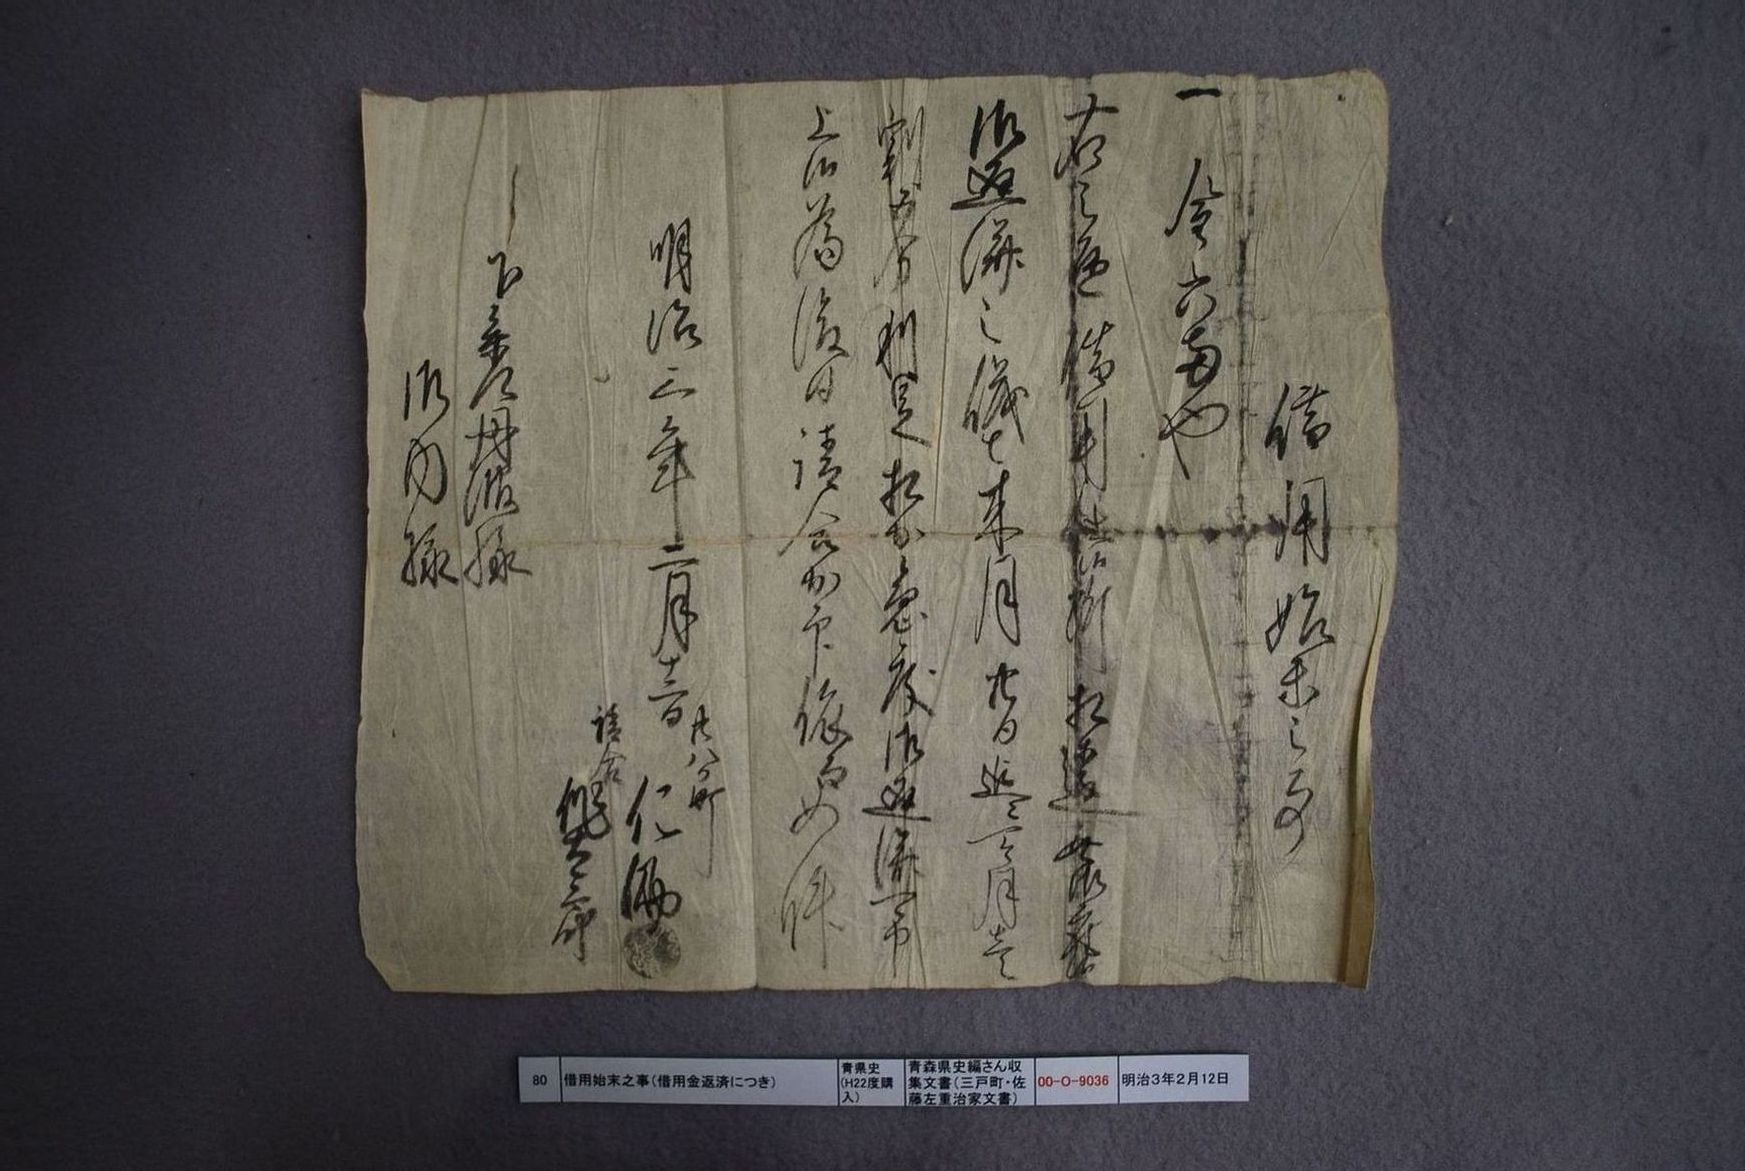 借用始末之事
一 金六両也
右之通借用仕候所相違無御座候
御返済之儀者来月廿日迄壱ヶ月壱
割五分利足相加急度御返済可申
上候為後日請合加印依而如件
明治三年二月十二日
廿八日町
仁
請合
丹波様
御内様
80
借用始末之事(借用金返済につき)
青県史
(H22度購
入)
青森県史編さん収
集文書(三戸町・佐
藤左重治家文書)
00-O-9036
明治3年2月12日